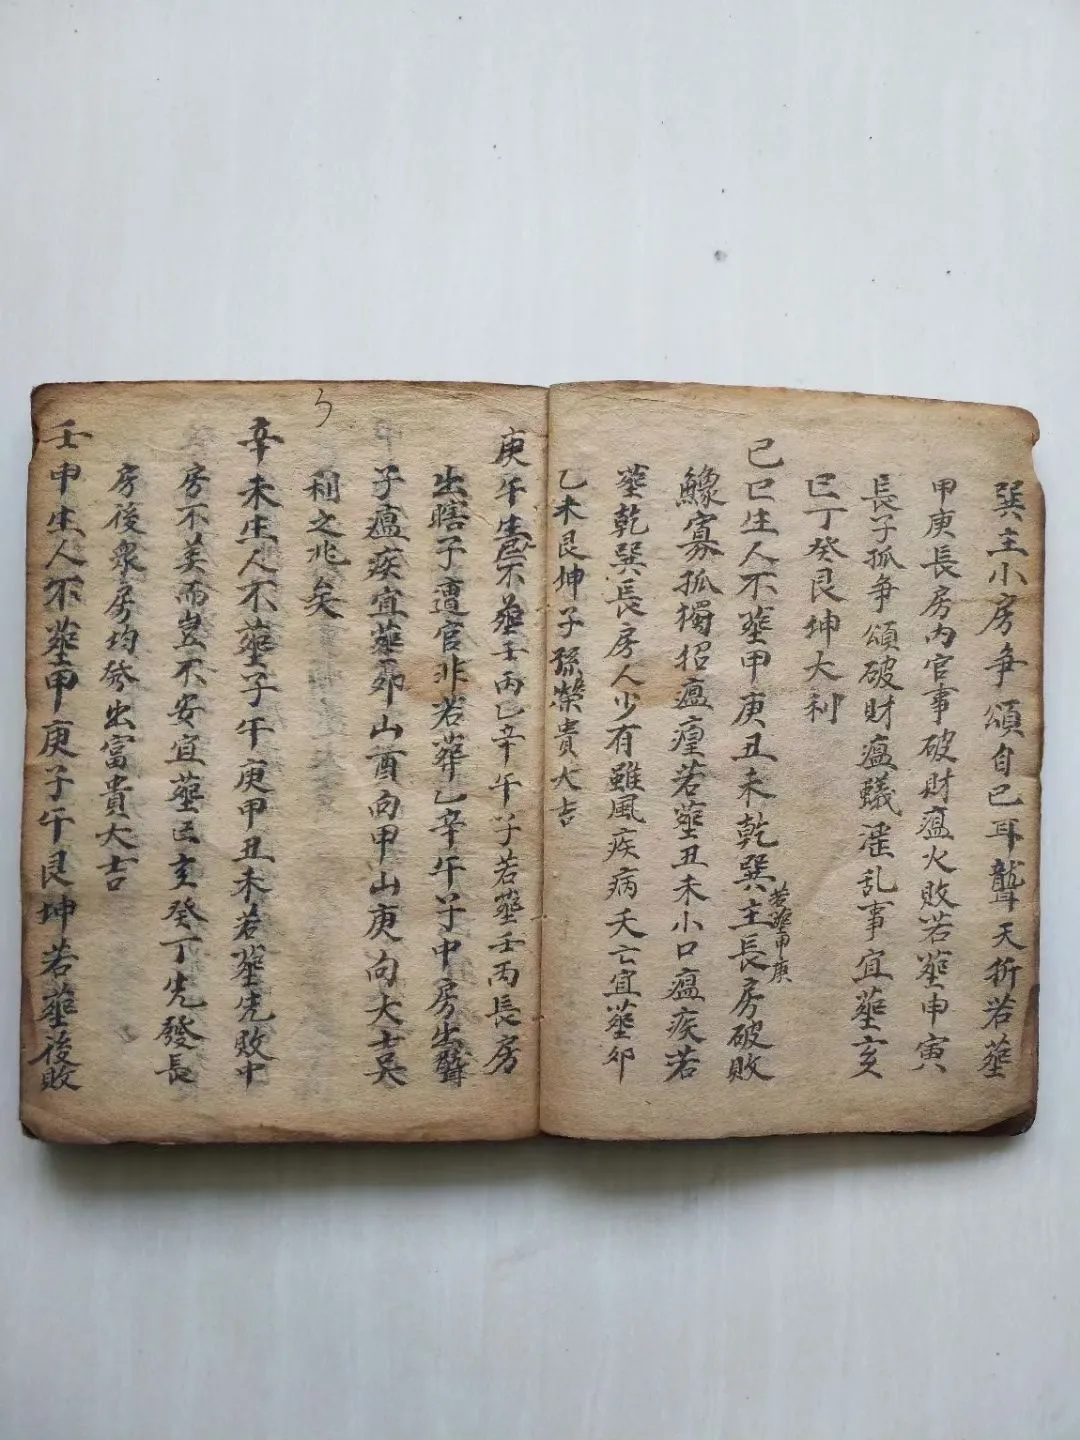 巽主小房争頌自己耳聾夭折若葬
甲庚長房内官事破財瘟火敗若葬申寅
長子孤争頌破財瘟蟻淫乱事宜葬亥
巳丁癸艮坤大利
己巳生人不葬甲庚丑未乾巽主長房破敗
若葬甲庚
鰥寡孤獨招瘟瘟若葬丑未小口瘟疾若
葬乾巽長房人少有雖風疾病夭亡宜葬卯
乙未艮坤子孫榮貴大吉
庚午生人不葬壬丙乙辛午子若葬壬丙長房
出瞎子遭官非若葬乙辛午子中房出聾
子瘟疾宜葬卯山酉向甲山庚向大吉吴
利之兆矣
辛未生人不葬子午庚甲丑未若葬先敗中
房不美而豈不安宜葬巳亥癸丁先發長
房後衆房均發出富貴大吉
壬申生人不葬甲庚子午艮坤若葬後敗